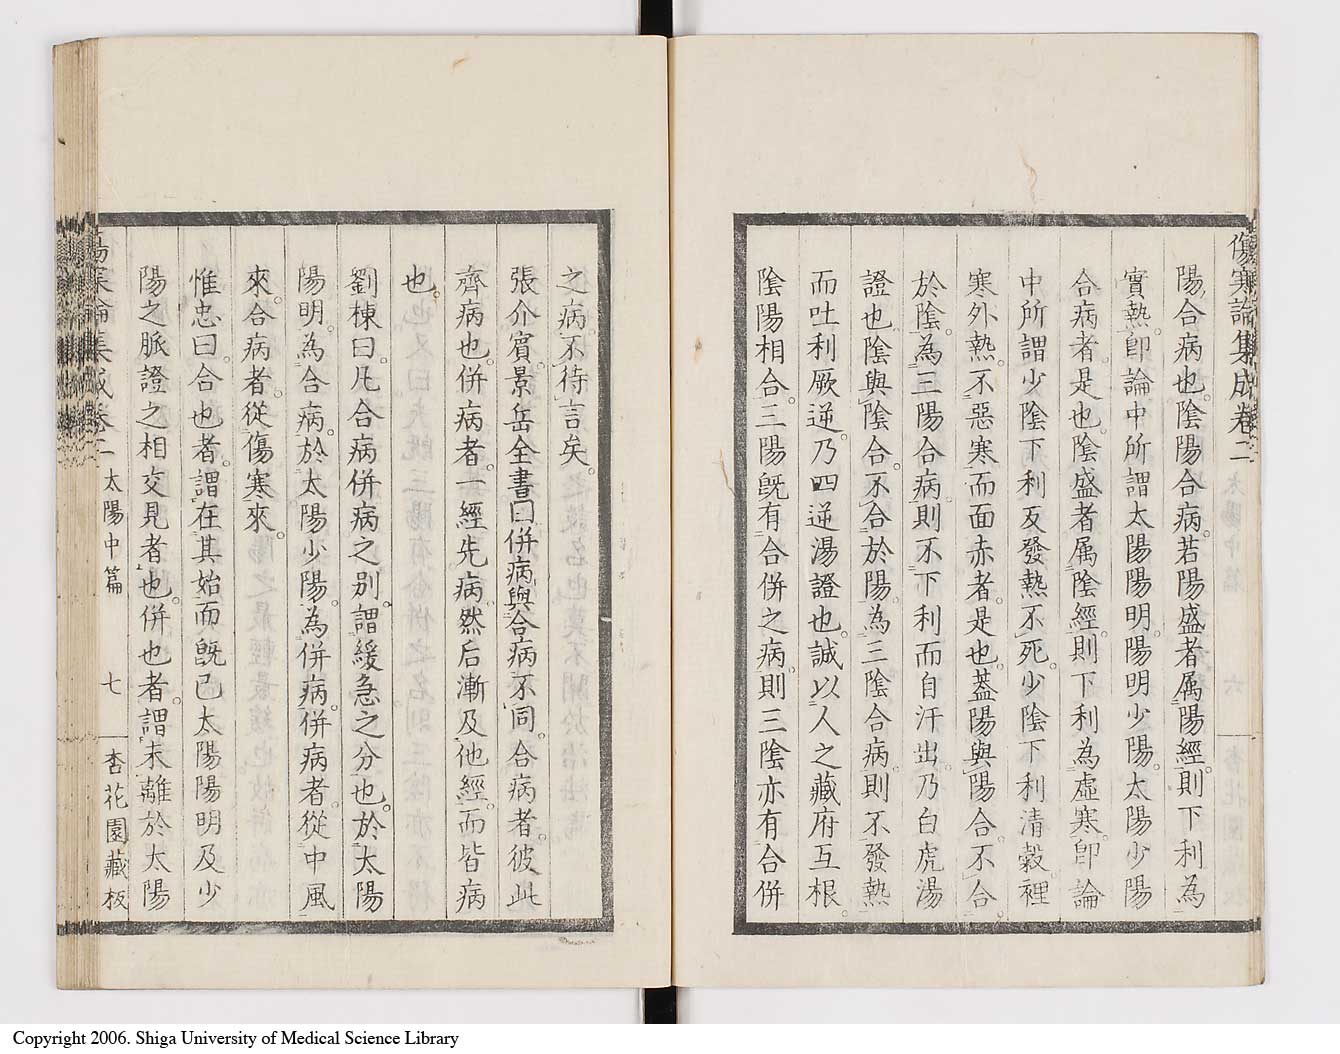 傷寒論集成卷二
陽合病也。陰陽合病。若陽盛者属陽經。則下利為
實熱。即論中所謂太陽陽明。陽明少陽。太陽少陽
合病者。是也。陰盛者属陰經。則下利為虛寒。即論
中所謂少陰下利反發熱不死。少陰下利清穀。裡
寒外熱。不惡寒而面赤者。是也。蓋陽與陽合。不合
於陰。為三陽合病。則不下利而自汗出。乃白虎湯
證也。陰與陰合。不合於陽。為三陰合病。則不發熱
而吐利厥逆。乃四逆湯證也。誠以人之藏府互根。
陰陽相合。三陽既有合併之病。則三陰亦有合併
之病。不待言矣。
張介賓景岳全書曰。併病與合病不同。合病者。彼此
齊病也。併病者。一經先病。然后漸及他經。而皆病
也。
劉棟曰。凡合病併病之別。謂緩急之分也。於太陽
陽明。為合病。於太陽少陽。為併病。併病者。從中風
來。合病者。從傷寒來。
惟忠曰。合也者。謂在其始而既已太陽陽明及少
陽之脈證之相交見者也。併也者。謂未離於太陽
傷寒論集成卷二 太陽中篇 七 杏花園藏板
Copyright 2006. Shiga University of Medical Science Library